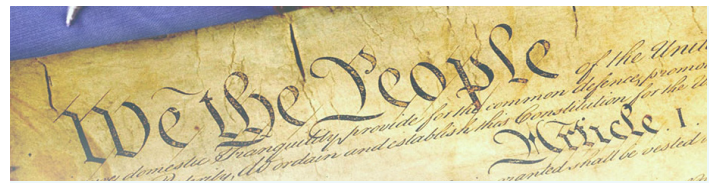 We the People of the Unit
domestic Tranquility, provide for the common defence, promo
Posterity, do ordain and establish this Constitution for the
Article. I.
granted shall be vested i